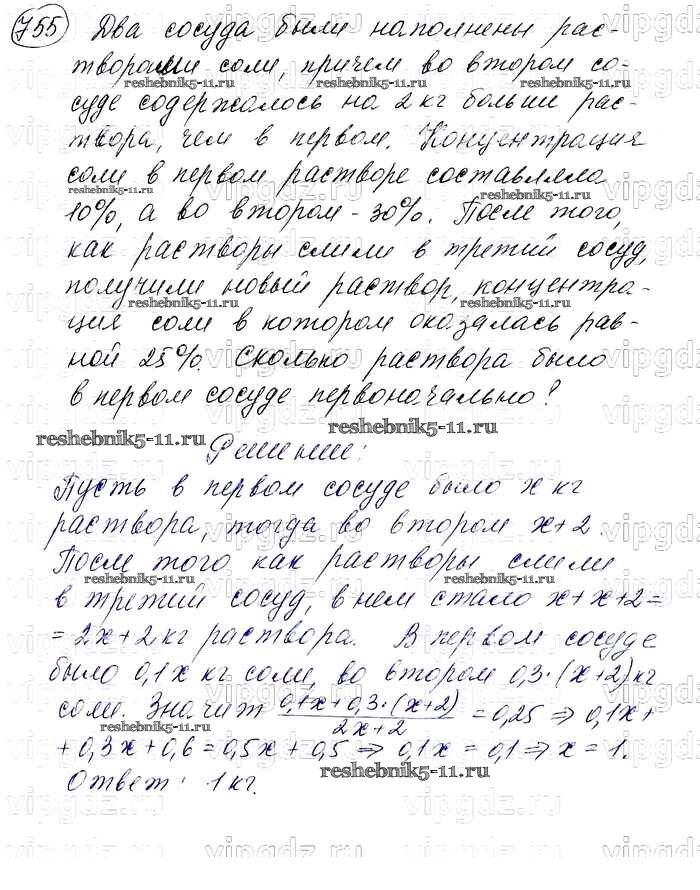 755 Два сосуда были наполнены рас-
творами соли, причем во втором со-
суде содержалось на 2 кг больше рас-
твора, чем в первом. Концентрация
соли в первом растворе составляла
10%, а во втором - 30%. После того,
как растворы слили в третий сосуд,
получили новый раствор, концентра-
ция соли в котором оказалась рав-
ной 25%. Сколько раствора было
в первом сосуде первоначально?
Решение:
Пусть в первом сосуде было x кг
раствора, тогда во втором x+2.
После того как растворы слили
в третий сосуд, в нем стало x+x+2=
=2x+2 кг раствора. В первом сосуде
было 0,1x кг соли, во втором 0,3·(x+2) кг
соли. Значит (0,1x+0,3·(x+2))/(2x+2) = 0,25 ⇒ 0,1x+
+0,3x+0,6=0,5x+0,5 ⇒ 0,1x=0,1 ⇒ x=1.
Ответ: 1 кг.
reshebnik5-11.ru
vipgdz.ru